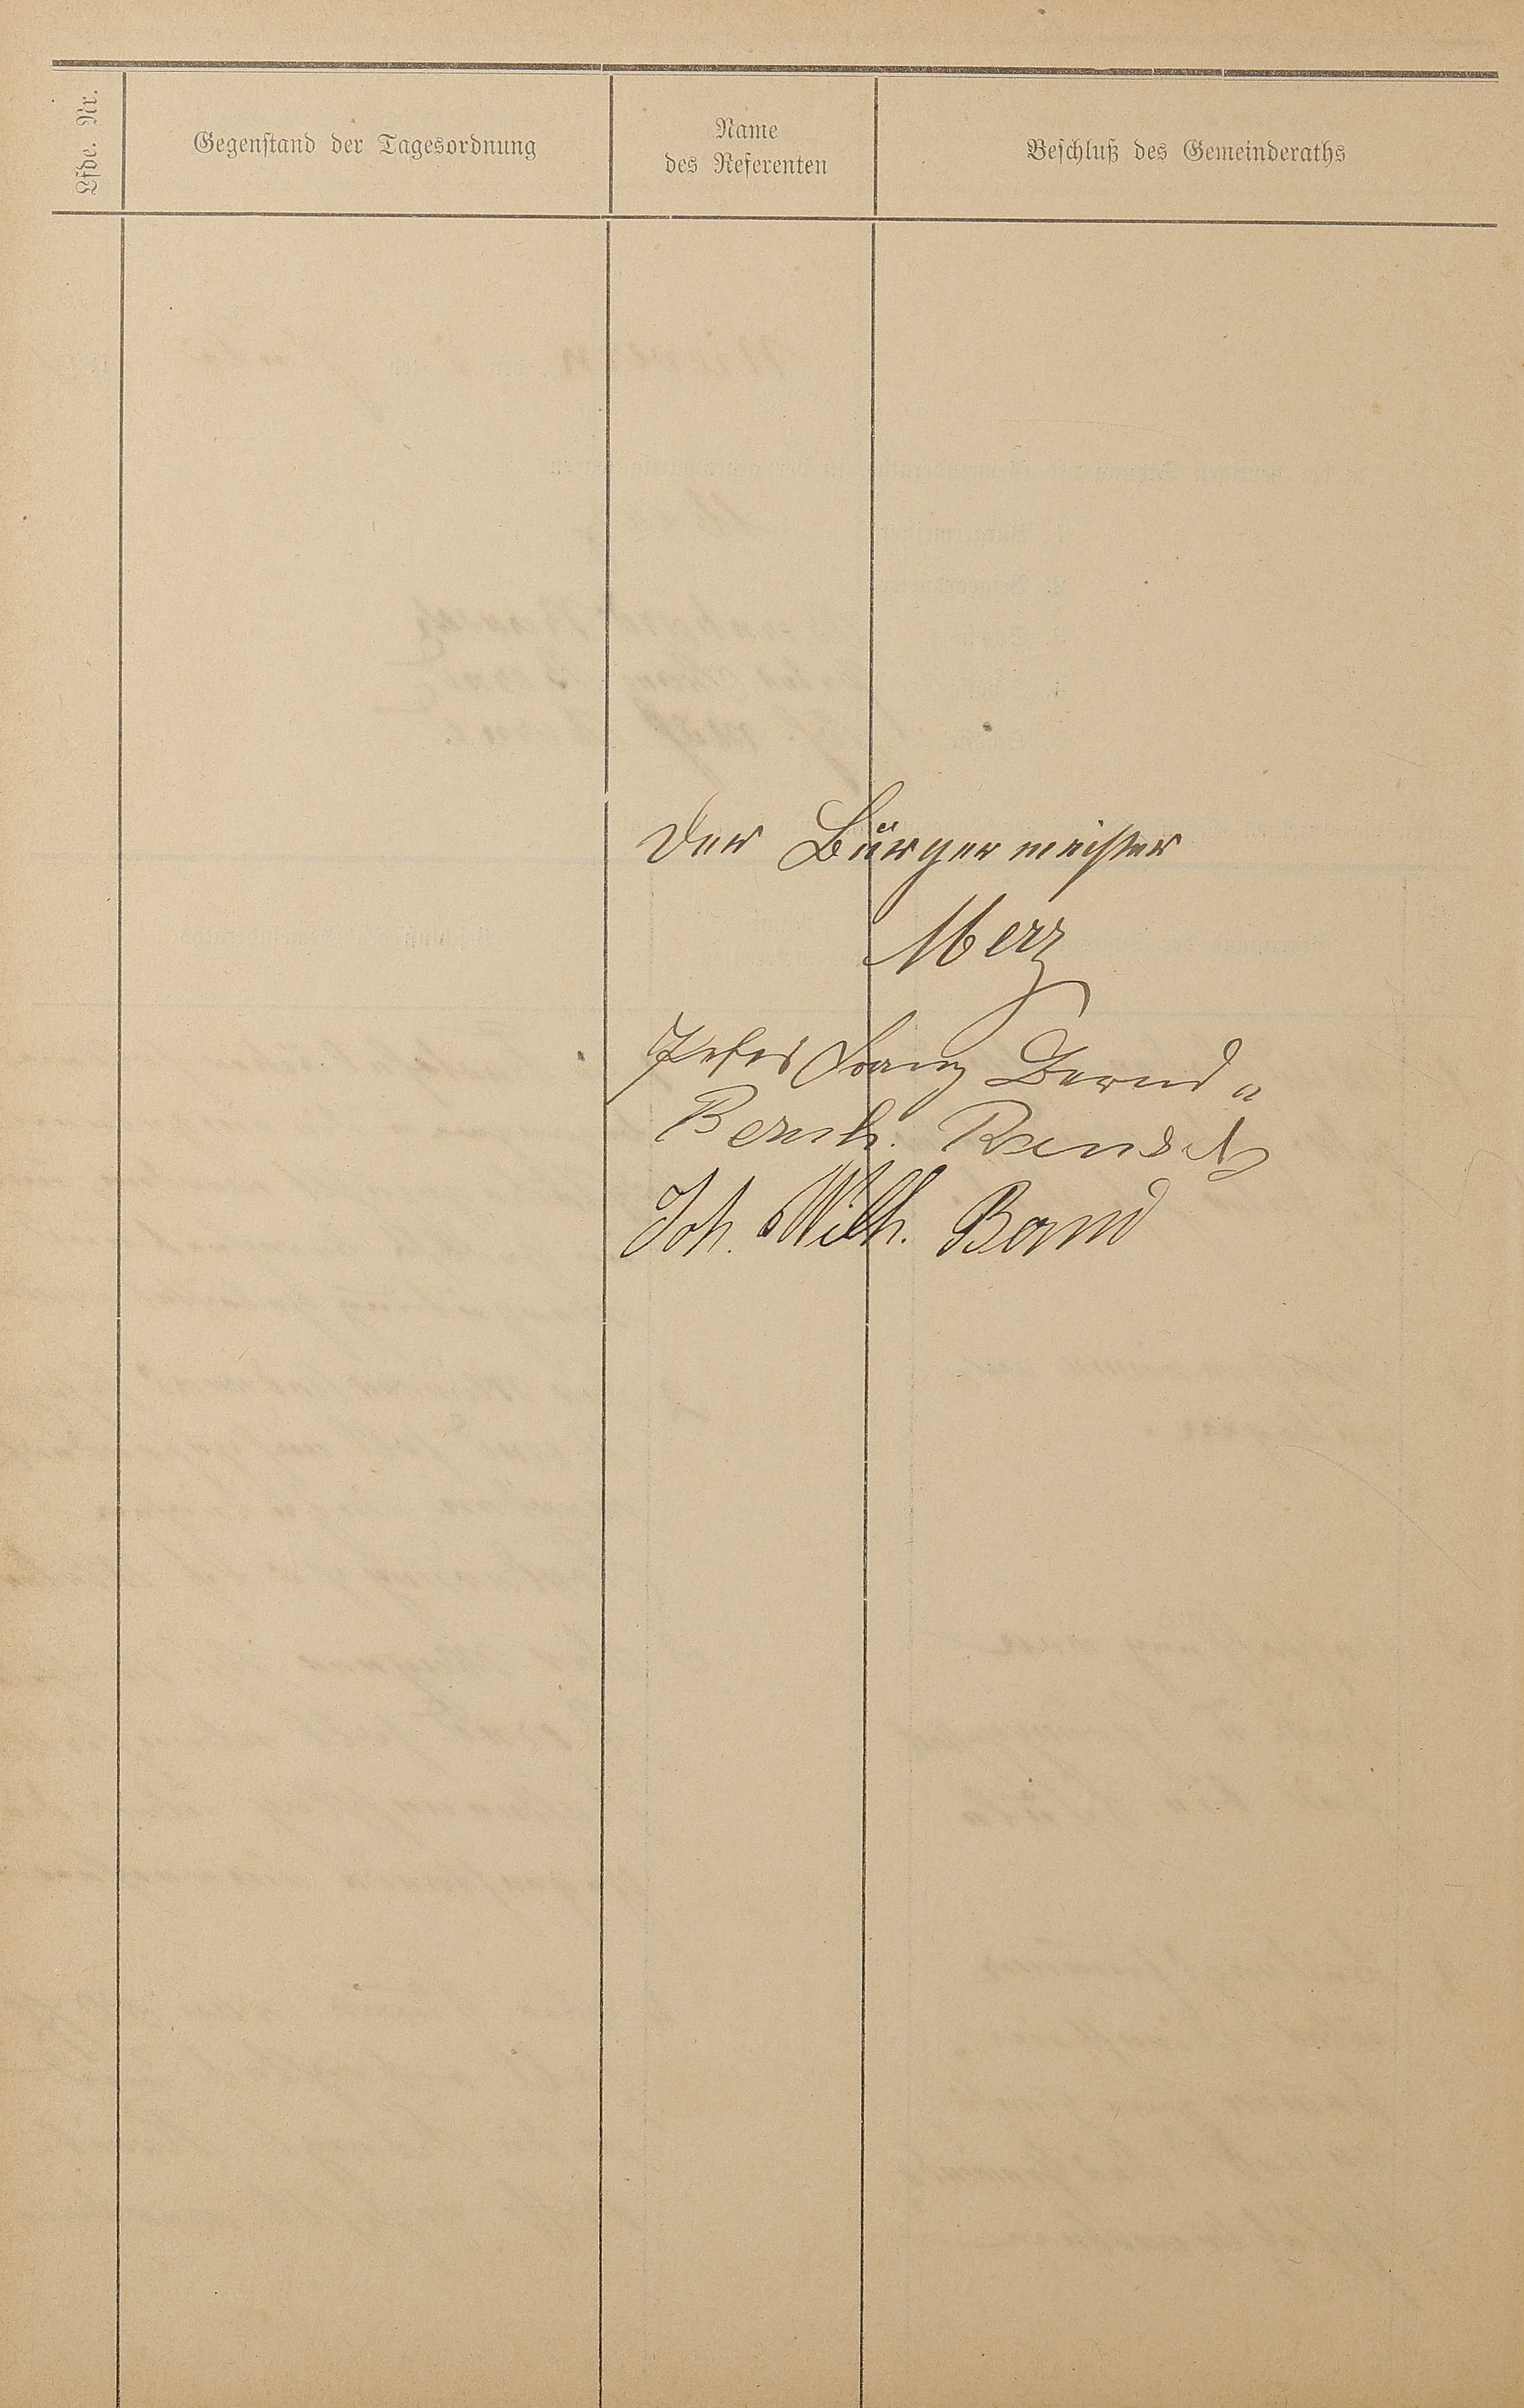 Lfde. Nr.
Gegenstand der Tagesordnung
Name
des Referenten
Beschluß des Gemeinderaths
Der Bürgermeister
Merz
Peter Franz Bernd
Bernh.
Joh. Wilh. Bernd